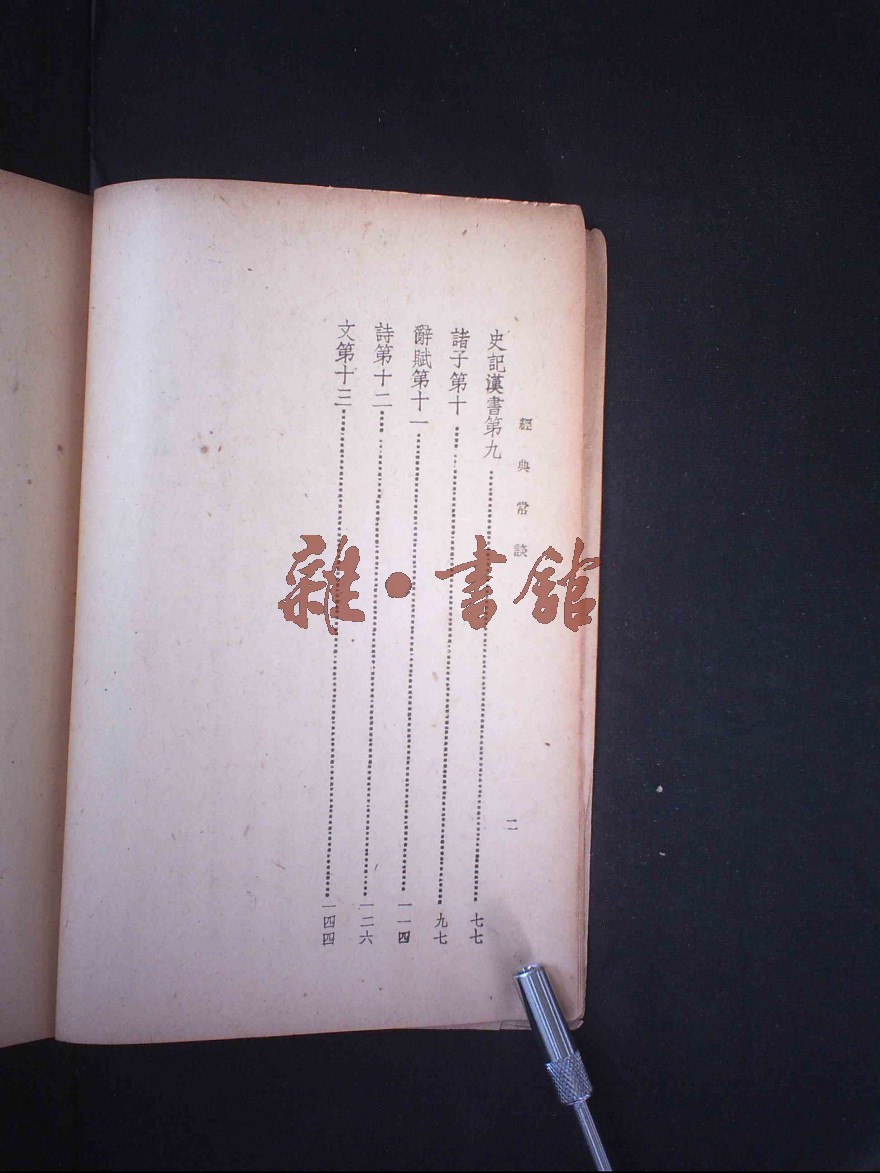 經典常談
二
史記漢書第九 七七
諸子第十 九七
辭賦第十一 一一四
詩第十二 一二六
文第十三 一四四
雜·書館